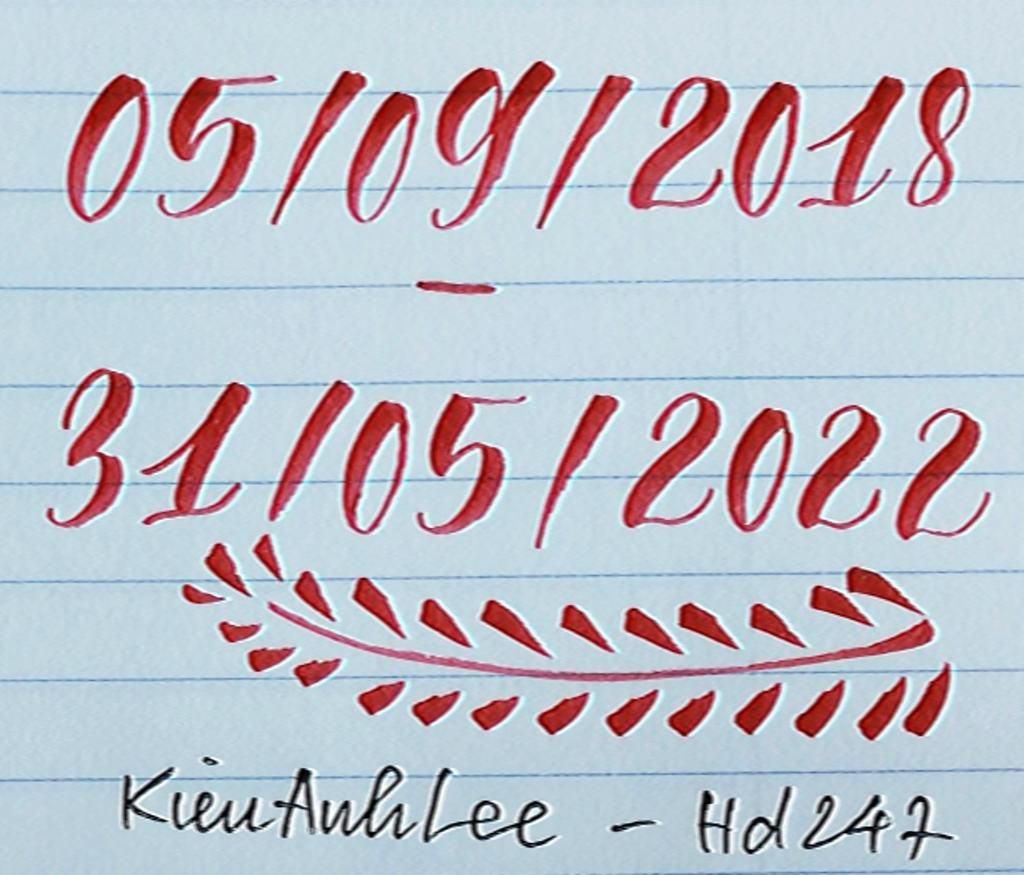 05/09/2018
-
31/05/2022
KieuAnhLee - Hd247